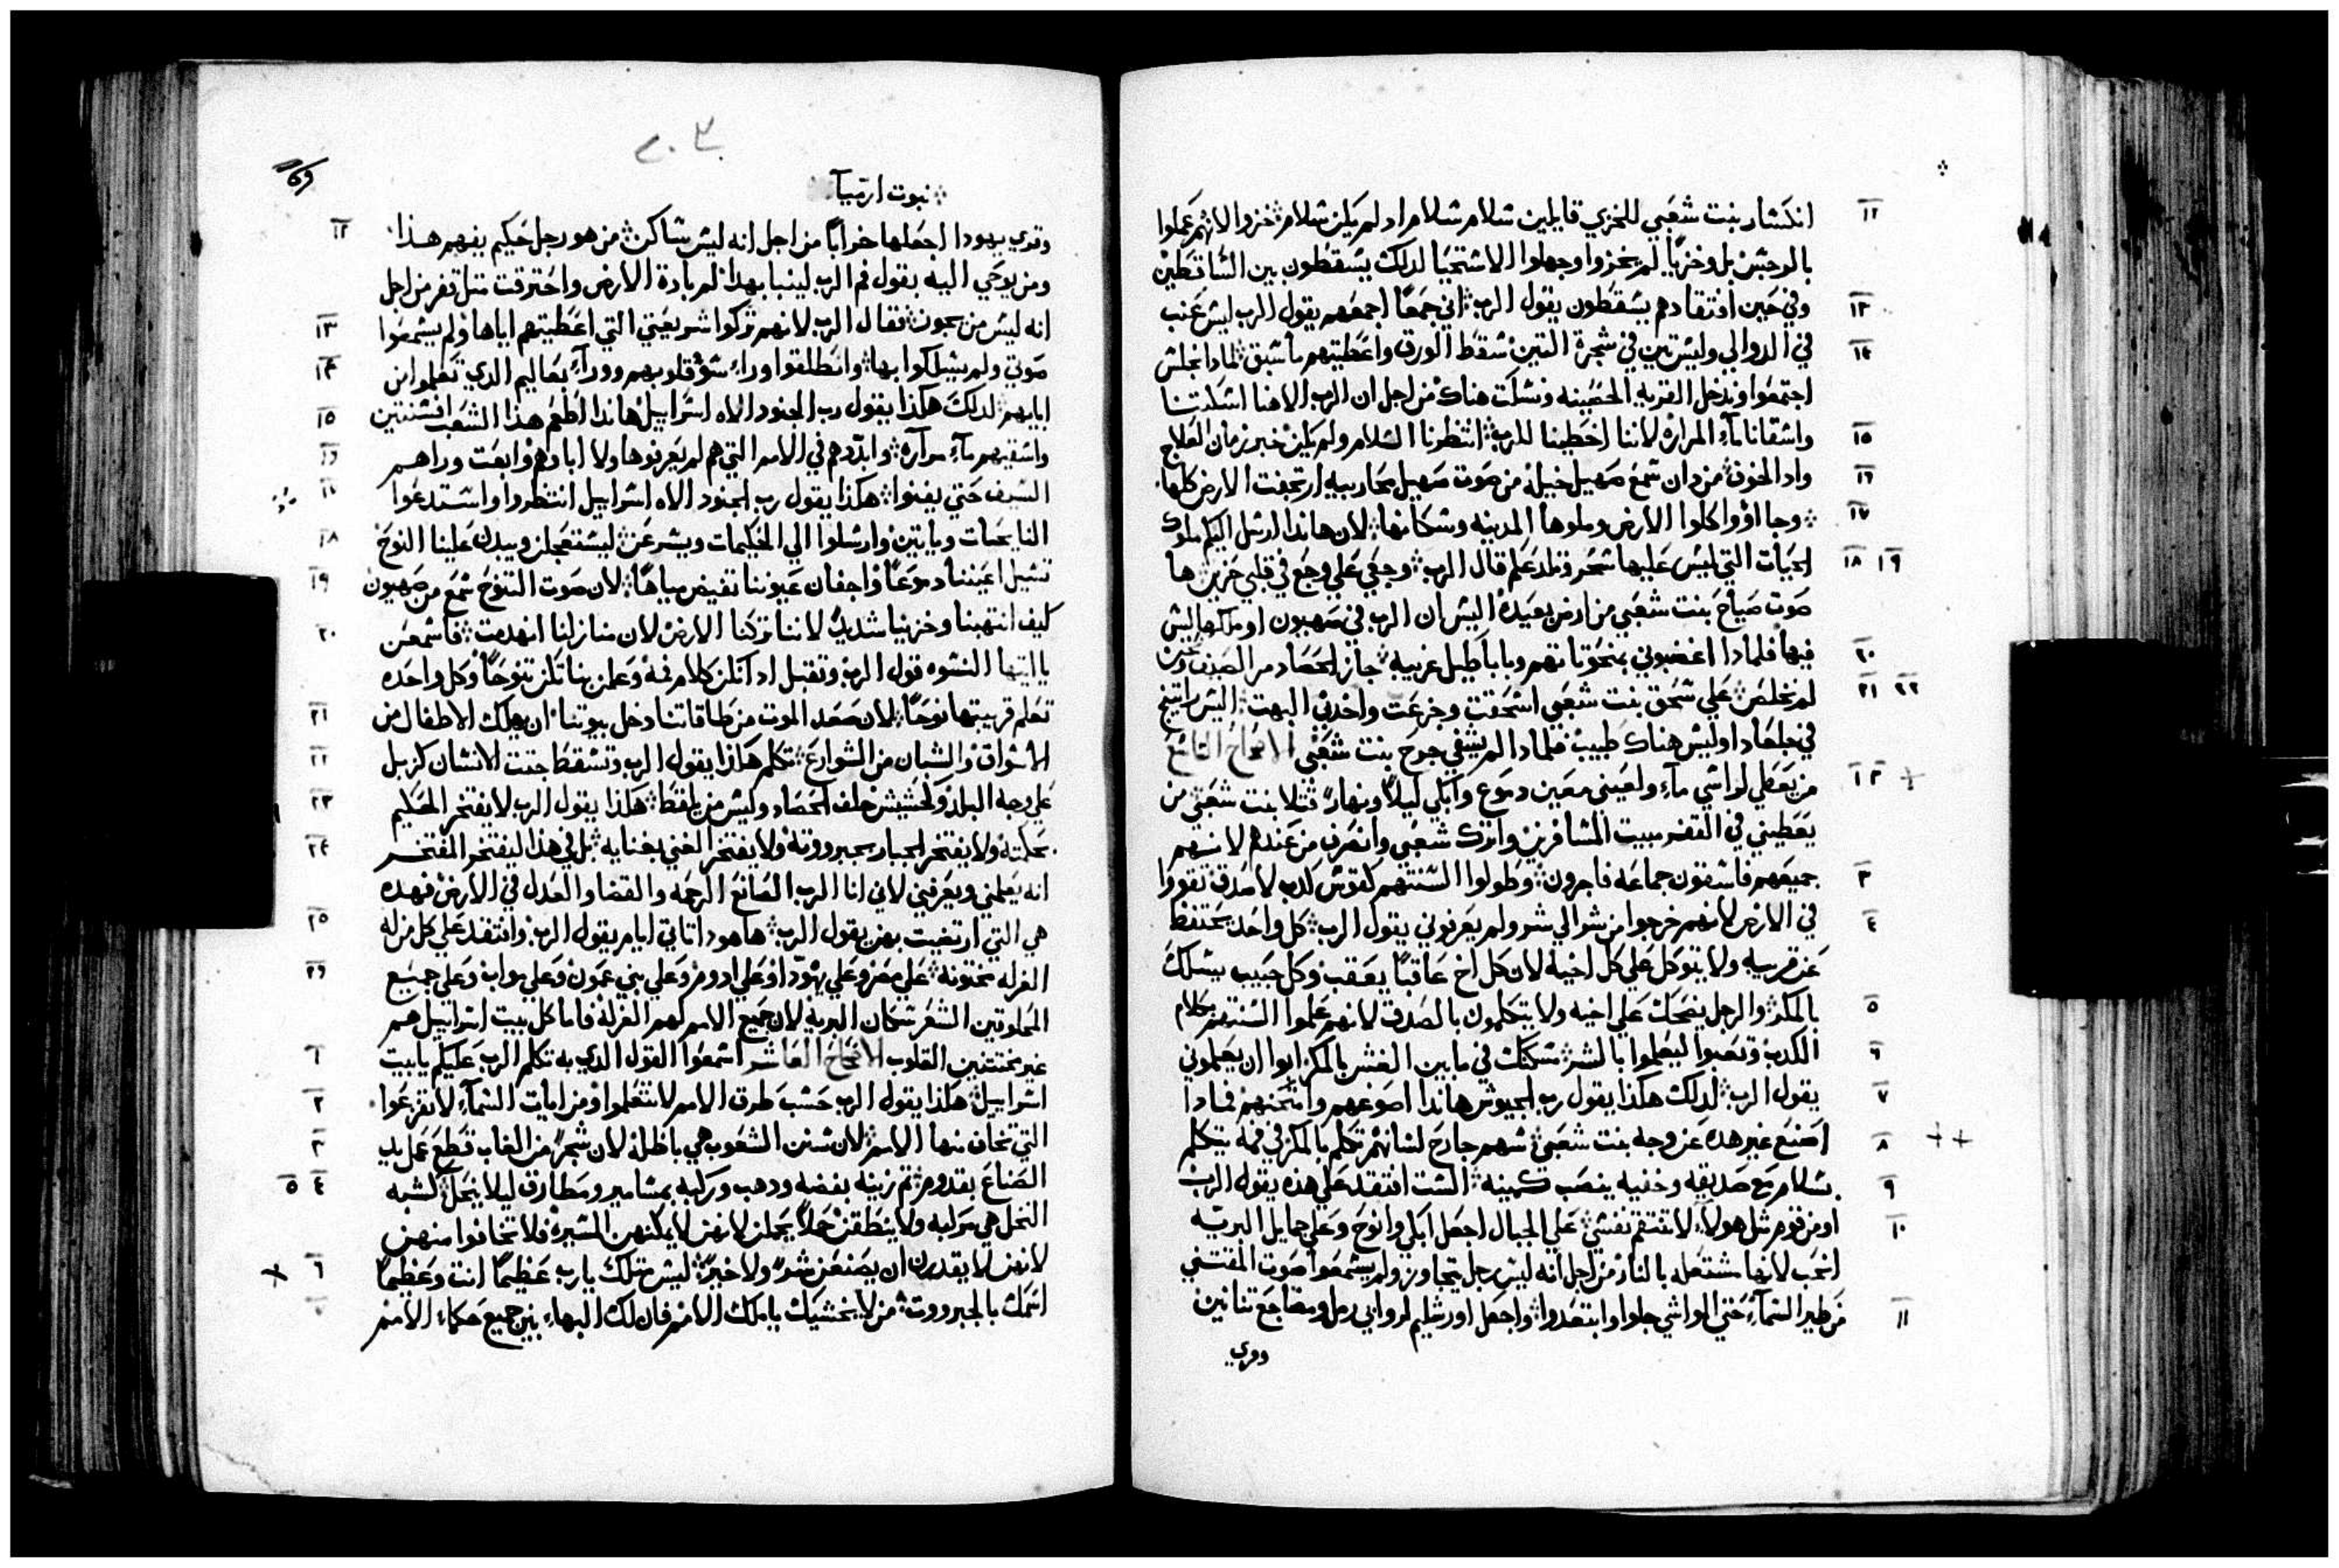 انكسار بنت شعبي للخزي قايلين سلام سلام اد لم يكن سلام خزوا لانهم عملوا ١١
بالرجس بل وخزيًا لم يخزوا وجهلوا الاستحيا لدلك يسقطون بين الساقطين
وفي حين افتقادهم يسقطون يقول الرب اني جمعًا اجمعهم يقول الرب ليس عنب ١٣
في الدوالي وليس تين في شجرة التين سقط الورق واعطيتهم ما سبق لمادا نجلس ١٤
اجتمعوا وندخل القريه الحصينه ونسكت هناك من اجل ان الرب الاهنا اسكتنا
واسقانا مآء المرارة لاننا اخطينا للرب انتظرنا السلام ولم يكن خير زمان العلاج ١٥
واد الخوف من دان سمع صهيل خيله من صوت صهيل محاربيه ارتجفت الارض كلها ١٦
وجااوا واكلوا الارض وملوها المدينه وسكانها لان هاندا ارسل اليكم ملوك ١٧
الحيات التي ليس عليها سحر وتلدغكم قال الرب وجعي علي وجع في قلبي حزين ها ١٨ ١٩
صوت صياح بنت شعبي من ارض بعيدة اليس ان الرب في صهيون او ملكها ليس
فيها فلمادا اغضبوني بمنحوتاتهم وباباطيل غريبه جاز الحصاد مر الصيف ونحن ٢٠
لم نخلص علي سحق بنت شعبي انسحقت وجزعت واخدني البهت اليس راتينج ٢١ ٢٢
في جلعاد او ليس هناك طبيب فلمادا لم يشفي جرح بنت شعبي الاصحاح التاسع
من يعطي لراسي مآء ولعيني معين دموع وابكي ليلاً ونهارً قتلا بنت شعبي من ١ ٢
يعطيني في القفر مبيت المسافرين واترك شعبي وانصرف من عندهم لانهم
جميعهم فاسقون جماعه فاجرون وطولوا السنتهم كقوس كدب لا صدق تقووا ٣
في الارض لانهم خرجوا من شر الي شر ولم يعرفوني يقول الرب كل واحد يحتفظ ٤
عن قريبه ولا يتوكل علي كل اخيه لان كل اخ عاقبًا يعقب وكل حبيب يسلك
بالمكر والرجل يضحك علي اخيه ولا يتكلمون بالصدق لانهم علموا السنتهم بكلام ٥
الكدب وتعبوا ليعملوا بالشر مسكنك في ما بين الغش بالمكر ابوا ان يعلموني ٦
يقول الرب لدلك هكدا يقول رب الجيوش هاندا اصوغهم وامتحنهم فمادا ٧
اصنع غير هده عن وجه بنت شعبي سهم جارح لسانهم تكلم بالمكر في فمه يتكلم ٨
بسلام مع صديقه وخفيه ينصب كمينه الست افتقد علي هده يقول الرب ٩
او من قوم مثل هولاء لا تنتقم نفسي علي الجبال اجعل ابكي وانوح وعلي جمايل البريه ١٠
انحب لانها مشتعله بالنار من اجل انه ليس رجل يتجاوز ولم يسمعوا صوت المقتني
من طير السمآء حتي المواشي جلوا وابتعدوا واجعل اورشليم لروابي رمل ومضاجع تنانين ١١
وقري
نبوت ارميآ
وقري يهودا اجعلها خرابًا من اجل انه ليس ساكن من هو رجل حكيم يفهم هدا ١٢
ومن يوحي اليه بقول فم الرب لينبا بهدا لم بادة الارض واحترقت مثل قفر من اجل
انه ليس من يجوز فقال الرب لانهم تركوا شريعتي التي اعطيتهم اياها ولم يسمعوا ١٣
صوتي ولم يسلكوا بها وانطلقوا وراء سوء قلوبهم ووراء بعاليم الدي تعلموا من ١٤
ابايهم لدلك هكدا يقول رب الجنود الاه اسراييل هاندا اطعم هدا الشعب افسنتين ١٥
واسقيهم مآء مرآرة وابددهم في الامم التي هم لم يعرفوها ولا اباوهم وابعت وراهم ١٦
السيف حتي يفنوا هكدا يقول رب الجنود الاه اسراييل انتظروا واستدعوا ١٧
النايحات وياتين وارسلوا الي الحكيمات ويسرعن ليستعجلن ويبدان علينا النوح ١٨
تسيل اعيننا دموعًا واجفان عيوننا تفيض مياهًا لان صوت التنوح سمع من صهيون ١٩
كيف انتهبنا وخزينا شديدً لاننا تركنا الارض لان منازلنا انهدمت فاسمعن ٢٠
يا ايتها النسوه قول الرب وتقبل ادانكن كلام فمه وعلمن بناتكن تنوحًا وكل واحده
تعلم قريبتها نوحًا لان صعد الموت من طاقاتنا دخل بيوتنا ان يهلك الاطفال من ٢١
الاسواق والشبان من الشوارع تكلم هكدا يقول الرب وتسقط جتت الانسان كزبل ٢٢
علي وجه البلد وكحشيش خلف الحصاد وليس من يلقط هكدا يقول الرب لا يفتخر الحكيم ٢٣
بحكمته ولا يفتخر الجبار بجبرووته ولا يفتخر الغني بغنايه بل في هدا ليفتخر المفتخر ٢٤
انه يعلمني ويعرفني لاني انا الرب الصانع الرحمه والقضا والعدل في الارض فهده
هي التي ارتضيت بهن يقول الرب ها هودا تاتي ايام يقول الرب وافتقد علي كل من له ٢٥
الغرله مختونه علي مصر وعلي يهودا وعلي ادوم وعلي بني عمون وعلي مواب وعلي جميع ٢٦
المحلوقين الشعر سكان البريه لان جميع الامم لهم الغرله فاما كل بيت اسراييل هم
غير مختتنين القلوب الاصحاح العاشر اسمعوا القول الدي به تكلم الرب عليكم يا بيت ١
اسراييل هكدا يقول الرب حسب طرق الامم لا تتعلموا ومن ايات السمآء لا تفزعوا ٢
التي تخاف منها الامم لان سنن الشعوب هي باطله لان شجرً من الغاب قطع عمل يد ٣
الصناع بقدوم تم زينه بفضه ودهب وركبه بمسامير ومطارق ليلا ينحل كشبه ٤ ٥
النخل هي مركبه ولا ينطقن حملاً يحملن لانهن لا يمكنهن المسير فلا تخافوا منهن
لانهن لا يقدرن ان يصنعن شرً ولا خيرً ليس متلك يا رب عظيمًا انت وعظيمًا ٦
اسمك بالجبرووت من لا يخشيك يا ملك الامم فان لك البهاء بين جميع حكماء الامم ٧